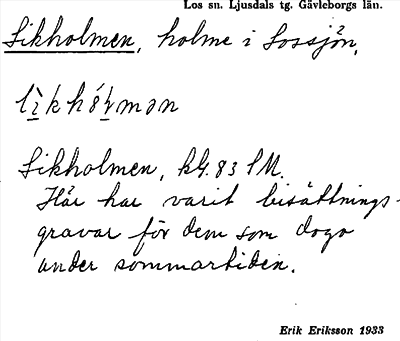 Los sn. Ljusdals tg. Gävleborgs län.
Sikholmen, holme i Lossjön.
Sikholmen, kbl. 83 SM.
Här har varit bisättnings-
gravar för dem som dogo
under sommartiden.
Erik Eriksson 1933